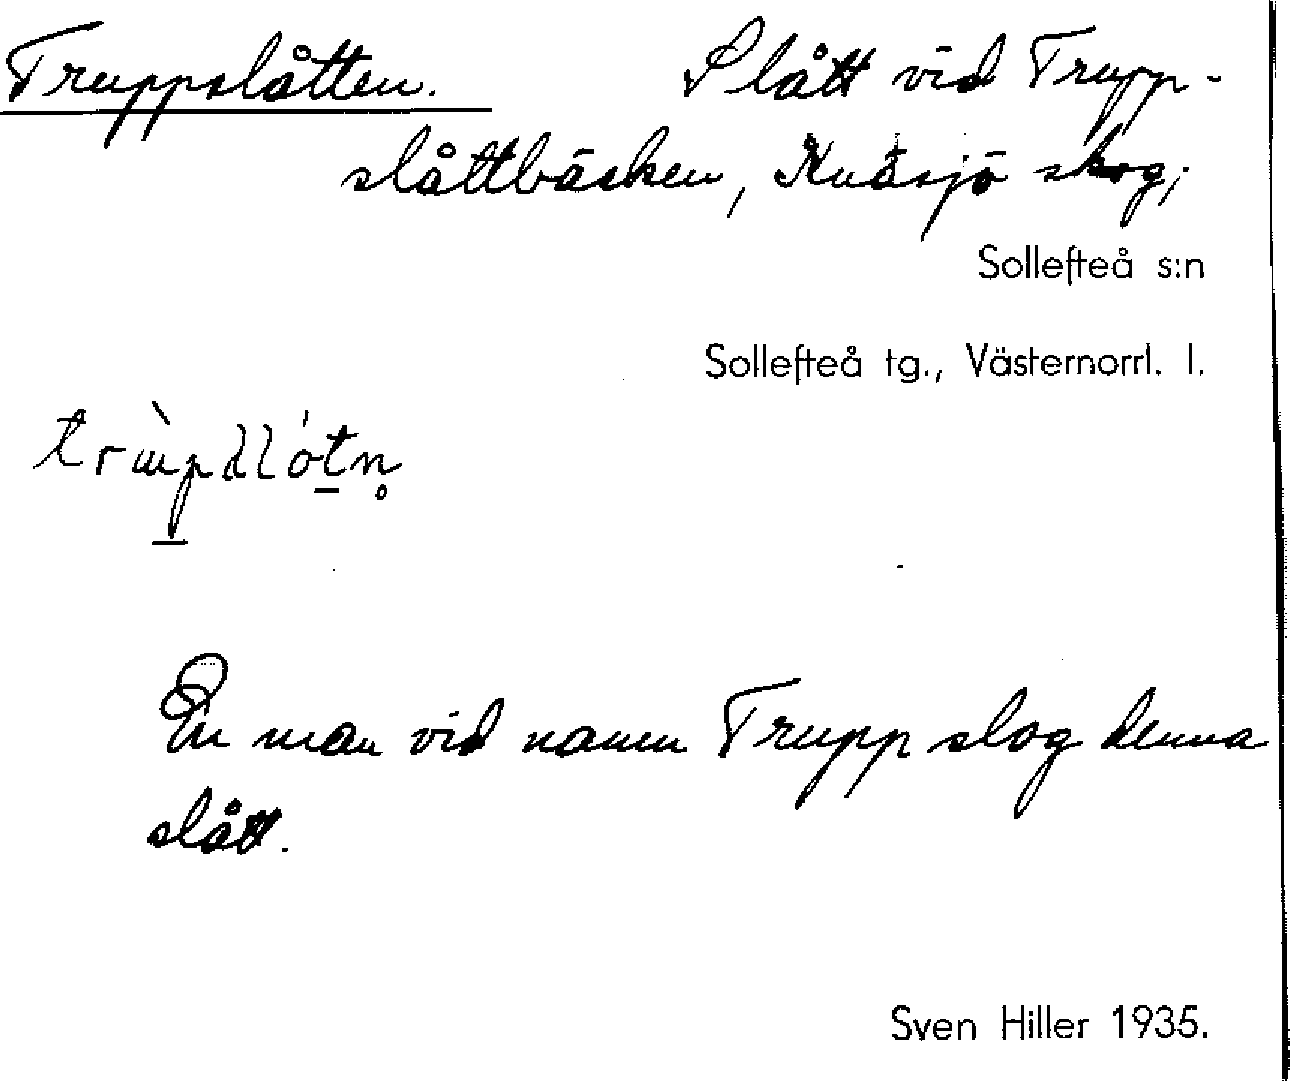 Truppslåtten. Slått vid Trupp-
slåttbäcken, Kvåsjö skog,
Sollefteå s:n
Sollefteå tg., Västernorrl. l.
En man vid namn Trupp slog denna
slått.
Sven Hiller 1935.